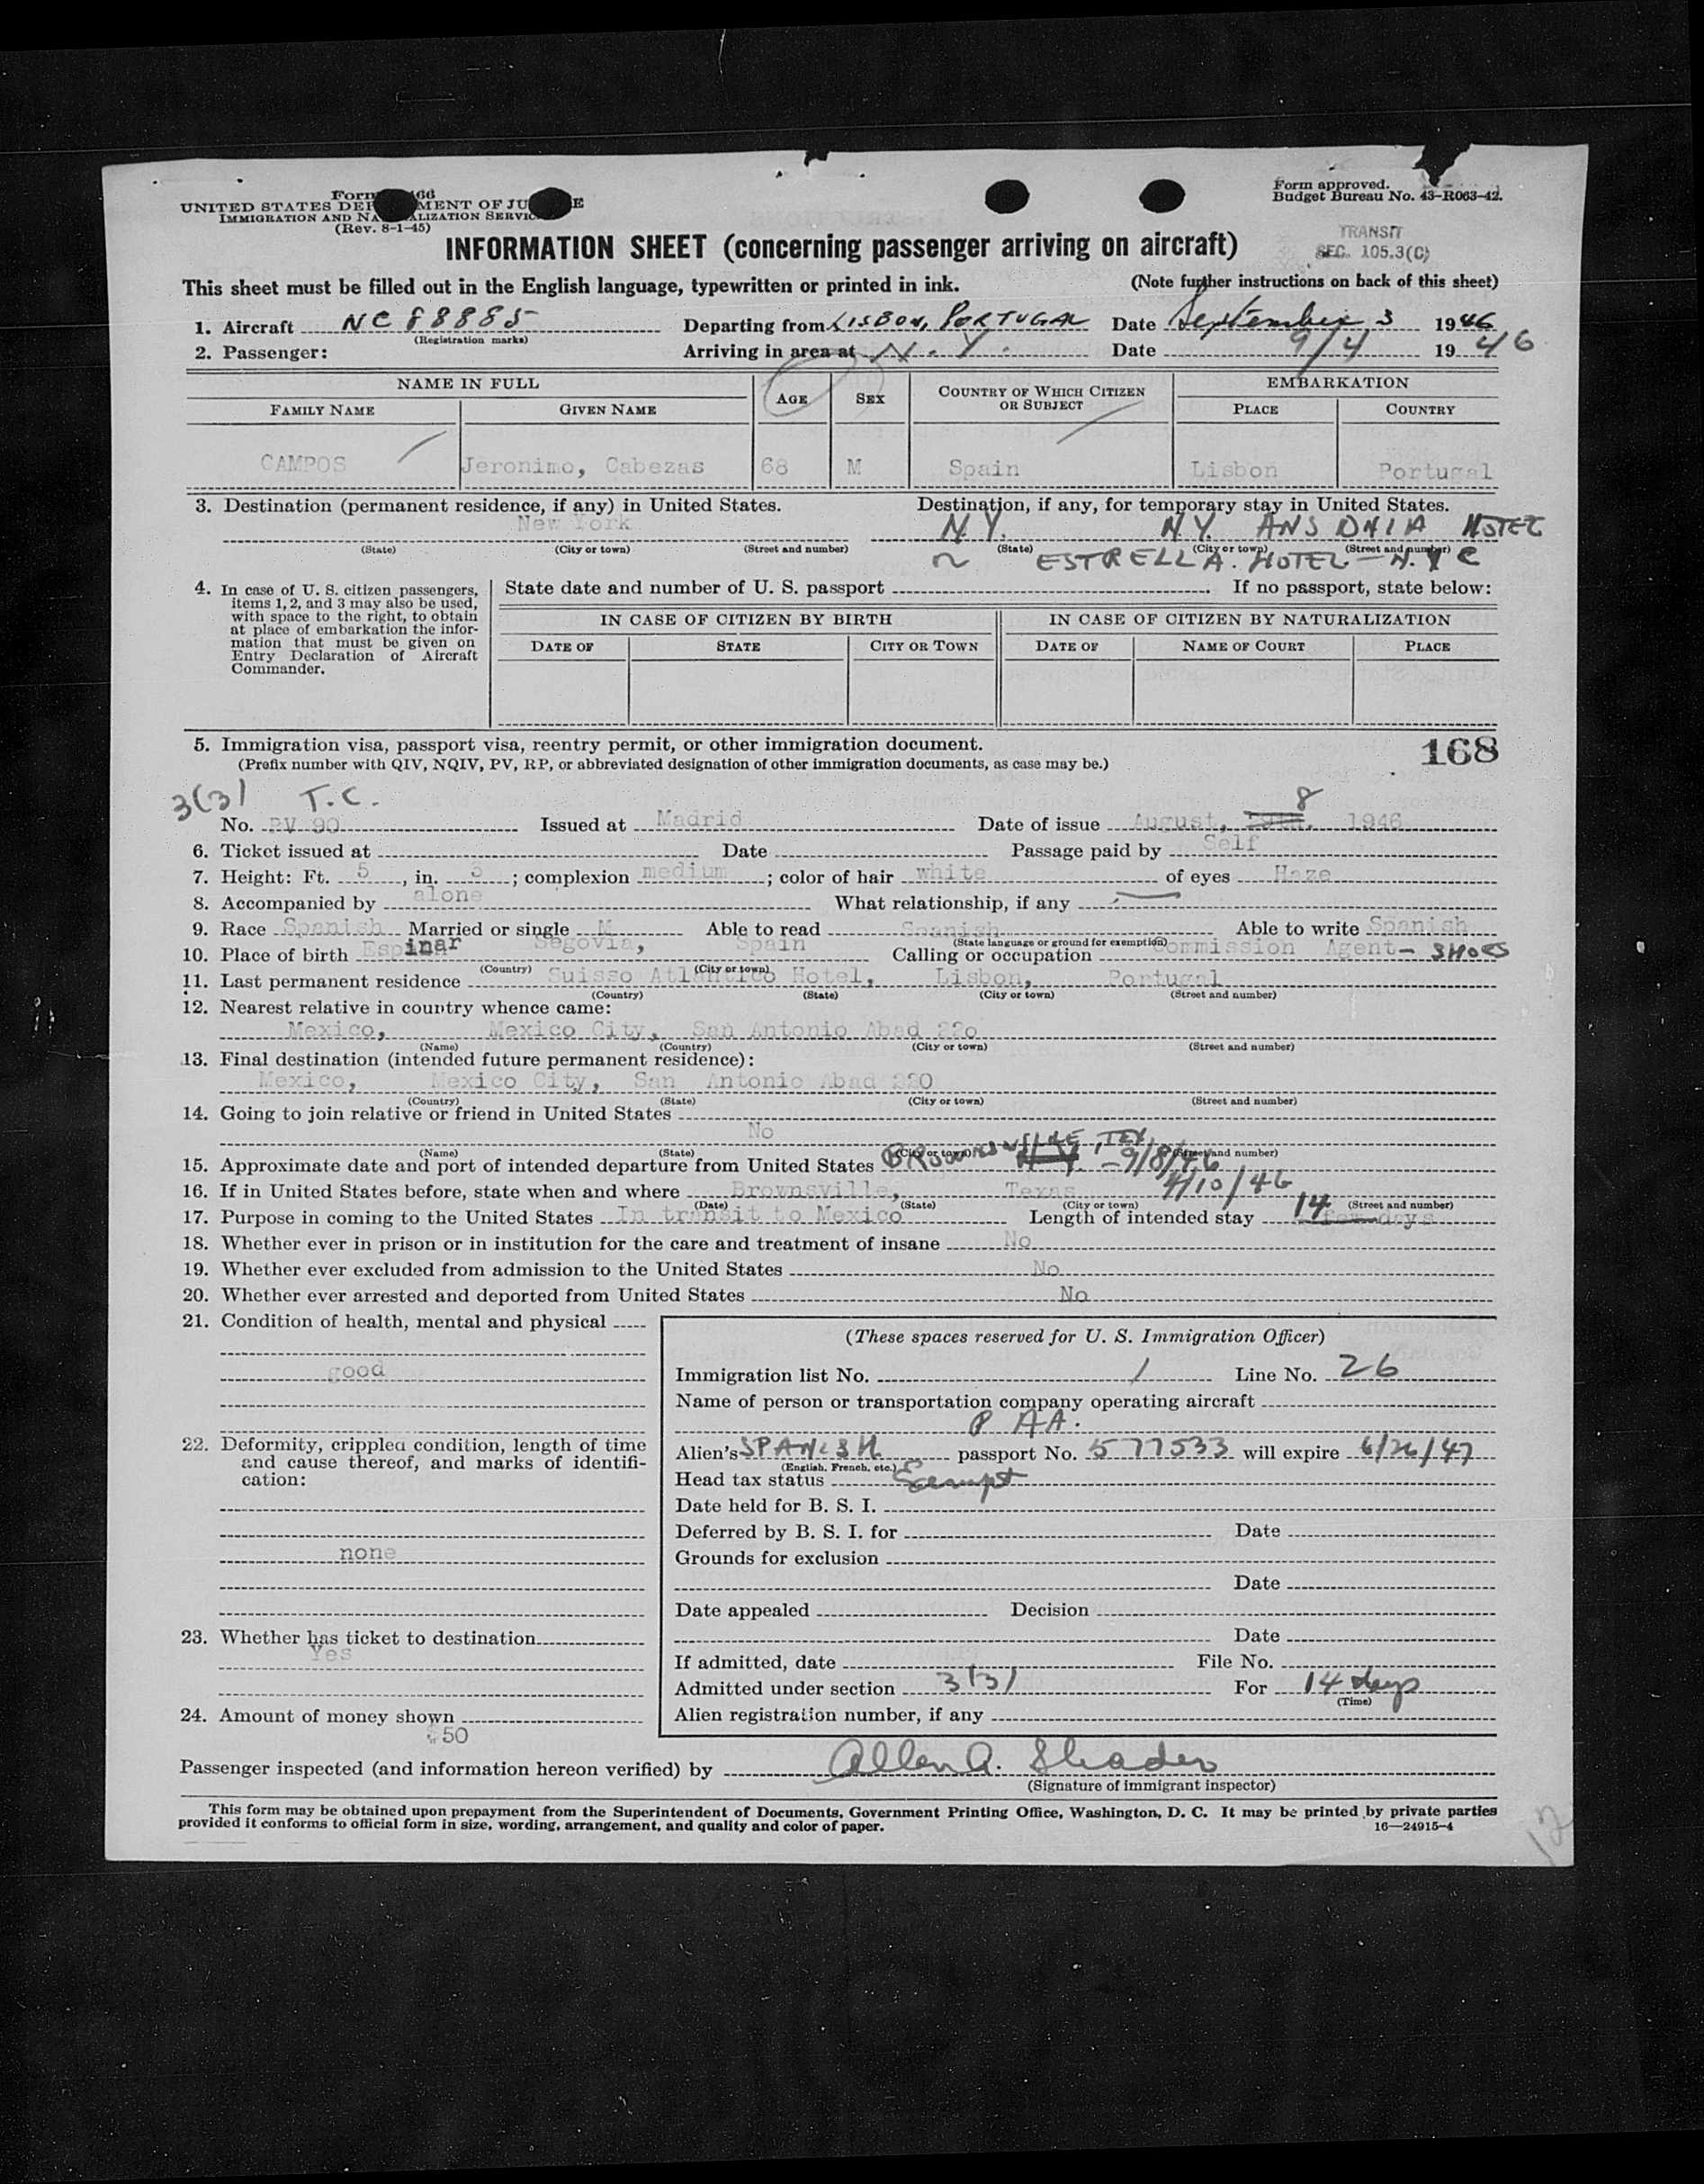 Form 466
UNITED STATES DEPARTMENT OF JUSTICE
IMMIGRATION AND NATURALIZATION SERVICE
(Rev. 8-1-45)
Form approved.
Budget Bureau No. 43-R063-42.
TRANSIT
SEC. 105.3(C)
INFORMATION SHEET (concerning passenger arriving on aircraft)
This sheet must be filled out in the English language, typewritten or printed in ink. (Note further instructions on back of this sheet)
1. Aircraft NC 88885 Departing from LISBON, PORTUGAL Date September 3 1946
(Registration marks)
2. Passenger: Arriving in area at N.Y. Date 9/4 1946
NAME IN FULL AGE SEX COUNTRY OF WHICH CITIZEN OR SUBJECT EMBARKATION
FAMILY NAME GIVEN NAME PLACE COUNTRY
CAMPOS Jeronimo, Cabezas 68 M Spain Lisbon Portugal
3. Destination (permanent residence, if any) in United States. Destination, if any, for temporary stay in United States.
New York N.Y. N.Y. ANSONIA HOTEL
(State) (City or town) (Street and number) (State) (City or town) (Street and number)
ESTRELLA. HOTEL - N.Y C
4. In case of U. S. citizen passengers, items 1, 2, and 3 may also be used, with space to the right, to obtain at place of embarkation the information that must be given on Entry Declaration of Aircraft Commander.
State date and number of U. S. passport If no passport, state below:
IN CASE OF CITIZEN BY BIRTH IN CASE OF CITIZEN BY NATURALIZATION
DATE OF STATE CITY OR TOWN DATE OF NAME OF COURT PLACE
5. Immigration visa, passport visa, reentry permit, or other immigration document. 168
(Prefix number with QIV, NQIV, PV, RP, or abbreviated designation of other immigration documents, as case may be.)
3(3) T.C. 8
No. PV 90 Issued at Madrid Date of issue August, 1946
6. Ticket issued at Date Passage paid by Self
7. Height: Ft. 5, in. 3; complexion medium; color of hair white of eyes Haze
8. Accompanied by alone What relationship, if any
9. Race Spanish Married or single M Able to read Spanish Able to write Spanish
(State language or ground for exemption)
10. Place of birth Espinar Segovia, Spain Calling or occupation Commission Agent - SHOES
(Country) (City or town)
11. Last permanent residence Suisso Atlantico Hotel, Lisbon, Portugal
(Country) (State) (City or town) (Street and number)
12. Nearest relative in country whence came:
Mexico, Mexico City, San Antonio Abad 22o
(Name) (Country) (City or town) (Street and number)
13. Final destination (intended future permanent residence):
Mexico, Mexico City, San Antonio Abad 220
(Country) (State) (City or town) (Street and number)
14. Going to join relative or friend in United States
No
(Name) (State) (City or town) (Street and number)
15. Approximate date and port of intended departure from United States BROWNSVILLE, TEX, N.Y. - 9/8/46
16. If in United States before, state when and where Brownsville, Texas 4/10/46
(Date) (State) (City or town) (Street and number)
17. Purpose in coming to the United States In transit to Mexico Length of intended stay 14 days
18. Whether ever in prison or in institution for the care and treatment of insane No
19. Whether ever excluded from admission to the United States No
20. Whether ever arrested and deported from United States No
21. Condition of health, mental and physical
good
22. Deformity, crippled condition, length of time and cause thereof, and marks of identification:
none
23. Whether has ticket to destination
Yes
24. Amount of money shown
$50
(These spaces reserved for U. S. Immigration Officer)
Immigration list No. 1 Line No. 26
Name of person or transportation company operating aircraft
P AA.
Alien's SPANISH passport No. 577533 will expire 6/26/47
(English, French, etc.)
Head tax status Exempt
Date held for B. S. I.
Deferred by B. S. I. for Date
Grounds for exclusion
Date
Date appealed Decision
Date
If admitted, date File No.
Admitted under section 3(3) For 14 days
(Time)
Alien registration number, if any
Passenger inspected (and information hereon verified) by Allen A. Shader
(Signature of immigrant inspector)
This form may be obtained upon prepayment from the Superintendent of Documents, Government Printing Office, Washington, D. C. It may be printed by private parties
provided it conforms to official form in size, wording, arrangement, and quality and color of paper. 16—24915-4
12